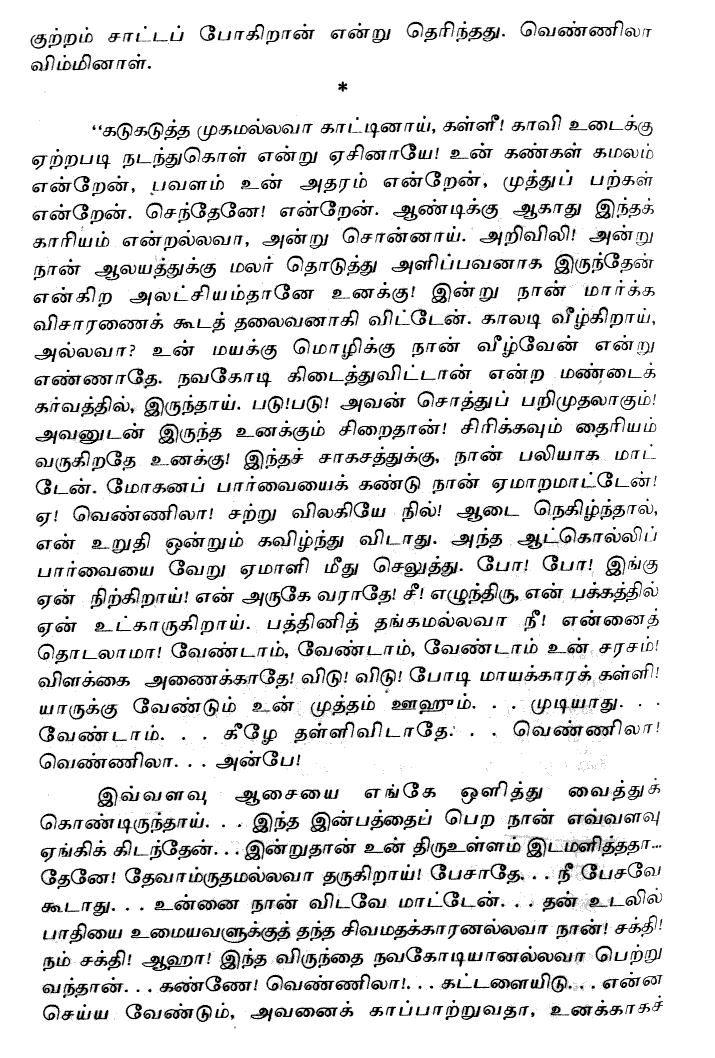 குற்றம் சாட்டப் போகிறான் என்று தெரிந்தது. வெண்ணிலா
விம்மினாள்.
*
“கடுகடுத்த முகமல்லவா காட்டினாய், கள்ளீ! காவி உடைக்கு
ஏற்றபடி நடந்துகொள் என்று ஏசினாயே! உன் கண்கள் கமலம்
என்றேன், பவளம் உன் அதரம் என்றேன், முத்துப் பற்கள்
என்றேன். செந்தேனே! என்றேன். ஆண்டிக்கு ஆகாது இந்தக்
காரியம் என்றல்லவா, அன்று சொன்னாய். அறிவிலி! அன்று
நான் ஆலயத்துக்கு மலர் தொடுத்து அளிப்பவனாக இருந்தேன்
என்கிற அலட்சியம்தானே உனக்கு! இன்று நான் மார்க்க
விசாரணைக் கூடத் தலைவனாகி விட்டேன். காலடி வீழ்கிறாய்,
அல்லவா? உன் மயக்கு மொழிக்கு நான் வீழ்வேன் என்று
எண்ணாதே. நவகோடி கிடைத்துவிட்டான் என்ற மண்டைக்
கர்வத்தில், இருந்தாய். படு!படு! அவன் சொத்துப் பறிமுதலாகும்!
அவனுடன் இருந்த உனக்கும் சிறைதான்! சிரிக்கவும் தைரியம்
வருகிறதே உனக்கு! இந்தச் சாகசத்துக்கு, நான் பலியாக மாட்
டேன். மோகனப் பார்வையைக் கண்டு நான் ஏமாறமாட்டேன்!
ஏ! வெண்ணிலா! சற்று விலகியே நில்! ஆடை நெகிழ்ந்தால்,
என் உறுதி ஒன்றும் கவிழ்ந்து விடாது. அந்த ஆட்கொல்லிப்
பார்வையை வேறு ஏமாளி மீது செலுத்து. போ! போ! இங்கு
ஏன் நிற்கிறாய்! என் அருகே வராதே! சீ! எழுந்திரு, என் பக்கத்தில்
ஏன் உட்காருகிறாய். பத்தினித் தங்கமல்லவா நீ! என்னைத்
தொடலாமா! வேண்டாம், வேண்டாம், வேண்டாம் உன் சரசம்!
விளக்கை அணைக்காதே! விடு! விடு! போடி மாயக்காரக் கள்ளி!
யாருக்கு வேண்டும் உன் முத்தம் ஊஹும். . . முடியாது. . .
வேண்டாம். . . கீழே தள்ளிவிடாதே. . . வெண்ணிலா!
வெண்ணிலா. . . அன்பே!
இவ்வளவு ஆசையை எங்கே ஒளித்து வைத்துக்
கொண்டிருந்தாய். . . இந்த இன்பத்தைப் பெற நான் எவ்வளவு
ஏங்கிக் கிடந்தேன். . . இன்றுதான் உன் திருஉள்ளம் இடமளித்ததா...
தேனே! தேவாம்ருதமல்லவா தருகிறாய்! பேசாதே. . . நீ பேசவே
கூடாது. . . உன்னை நான் விடவே மாட்டேன். . . தன் உடலில்
பாதியை உமையவளுக்குத் தந்த சிவமதக்காரனல்லவா நான்! சக்தி!
நம் சக்தி! ஆஹா! இந்த விருந்தை நவகோடியானல்லவா பெற்று
வந்தான். . . கண்ணே! வெண்ணிலா!. . . கட்டளையிடு. . . என்ன
செய்ய வேண்டும், அவனைக் காப்பாற்றுவதா, உனக்காகச்